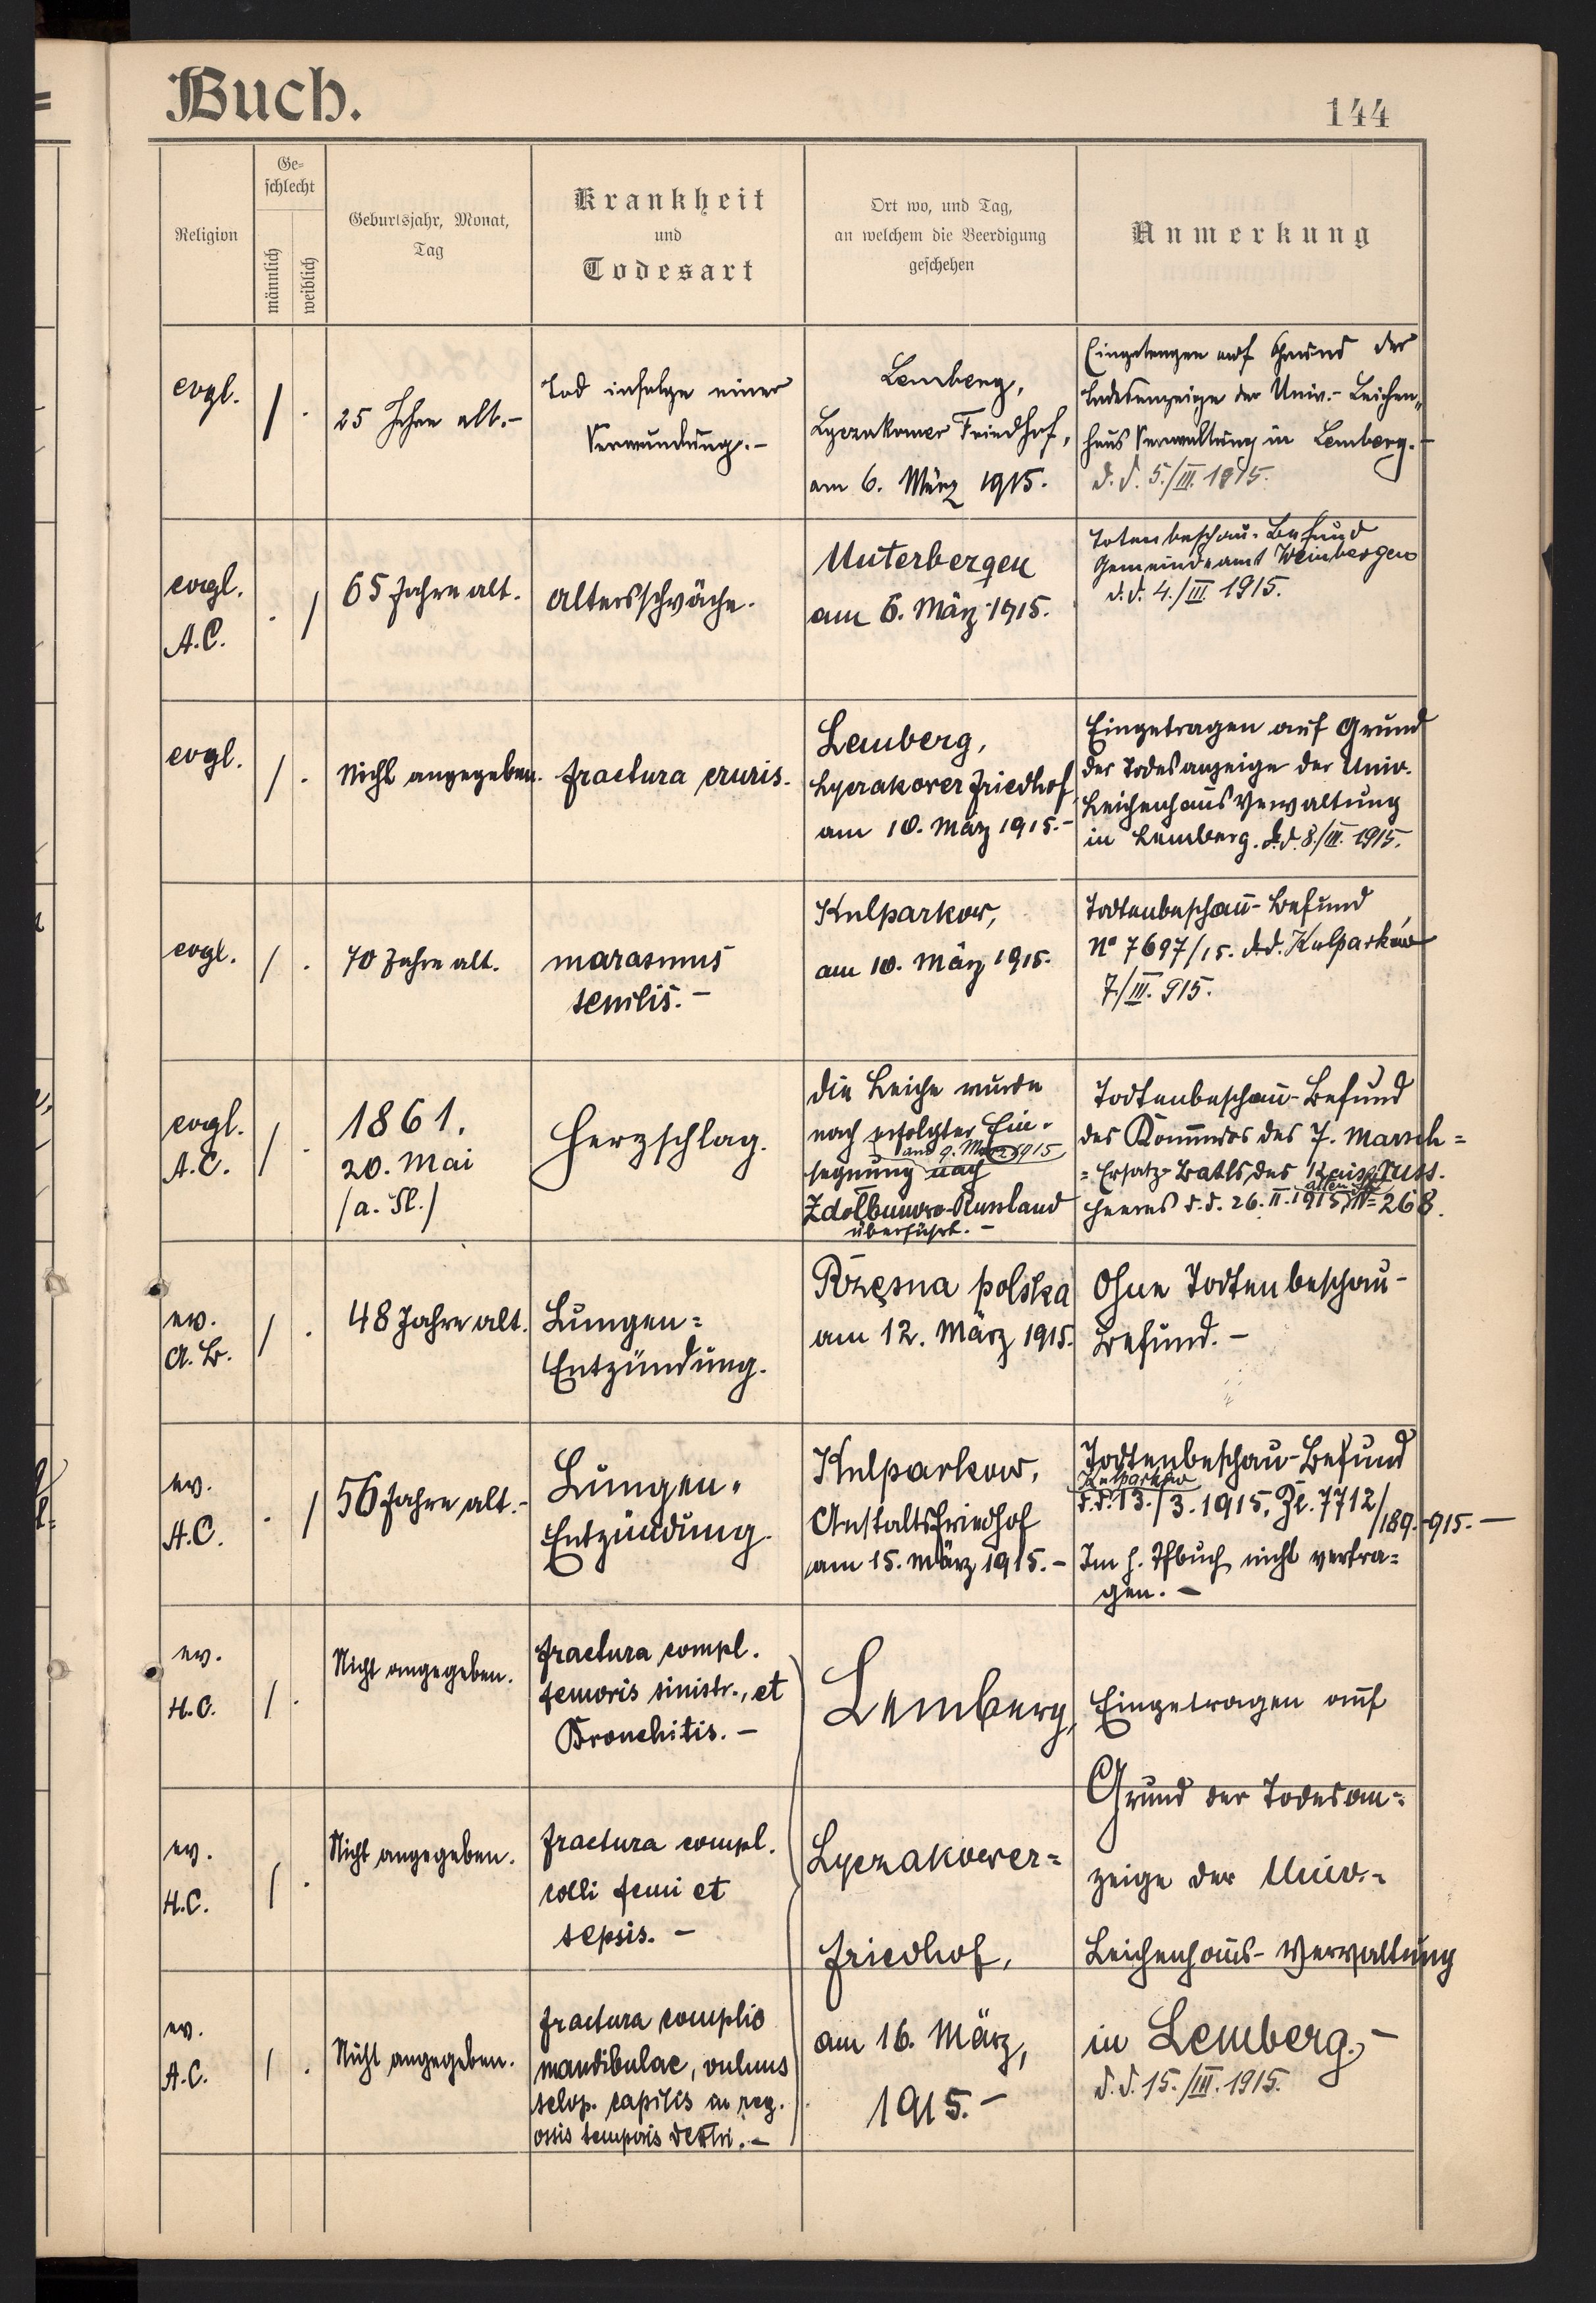 Buch.
144
Religion
Ge-
schlecht
männlich
weiblich
Geburtsjahr, Monat,
Tag
Krankheit
und
Todesart
Ort wo, und Tag,
an welchem die Beerdigung
geschehen
Anmerkung
evgl.
/ .
25 Jahre alt.-
Tod infolge einer
Verwundung.-
Lemberg,
Lyczakower Friedhof,
am 6. März 1915.
Eingetragen auf Grund der
Todesanzeige der Univ.- Leichen-
haus Verwaltung in Lemberg.-
d.d. 5./III. 1915.
evgl.
A.C.
. /
65 Jahre alt.
Altersschwäche.
Unterbergen
am 6. März 1915.
Totenbeschau-Befund
Gemeindeamt Weinbergen
d.d. 4./III. 1915.
evgl.
/ .
Nicht angegeben.
fractura cruris.
Lemberg,
Lyczakower Friedhof,
am 10. März 1915.-
Eingetragen auf Grund
der Todesanzeige der Univ.
Leichenhaus Verwaltung
in Lemberg. d.d. 8./III. 1915.
evgl.
/ .
70 Jahre alt.
marasmus
senilis.-
Kulparkow,
am 10. März 1915.
Todtenbeschau-Befund
No 7697/15. d.d. Kulparków
7./III. 915.
evgl.
A.C.
/ .
1861.
20. Mai
/a. St./
Herzschlag.
Die Leiche wurde
nach erfolgter Ein-
am 9. März 1915
segnung nach
Zdolbunowo-Russland
überführt.-
Todtenbeschau-Befund
des Kommdos des 7. Marsch-
-Ersatz-Batls des Kais. russ.
alten St.
Heeres d.d. 26. II. 1915, No 268.
ev.
A.B.
/ .
48 Jahre alt.
Lungen-
Entzündung.
Rzęsna polska
am 12. März 1915.
Ohne Todtenbeschau-
Befund.-
ev.
A.C.
. /
56 Jahre alt.-
Lungen-
Entzündung.
Kulparkow,
Anstaltsfriedhof
am 15. März 1915.-
Todtenbeschau-Befund
Kulparkow
d.d. 13./3. 1915, Zl. 7712/189.-915.-
Im h. Tfbuch nicht vertra-
gen.-
ev.
H.C.
/ .
Nicht angegeben.
fractura compl.
femoris sinistr., et
Bronchitis.-
Lemberg,
Eingetragen auf
Grund der Todesan-
ev.
H.C.
/ .
Nicht angegeben.
fractura compl.
colli femi et
sepsis.-
Lyczakower-
Friedhof,
zeige der Univ.-
Leichenhaus-Verwaltung
ev.
A.C.
/ .
Nicht angegeben.
fractura complic
mandibulae, vulnus
sclop. capitis in reg.
ossis temporis dextri.-
am 16. März,
1915.-
in Lemberg,-
d.d. 15./III. 1915.